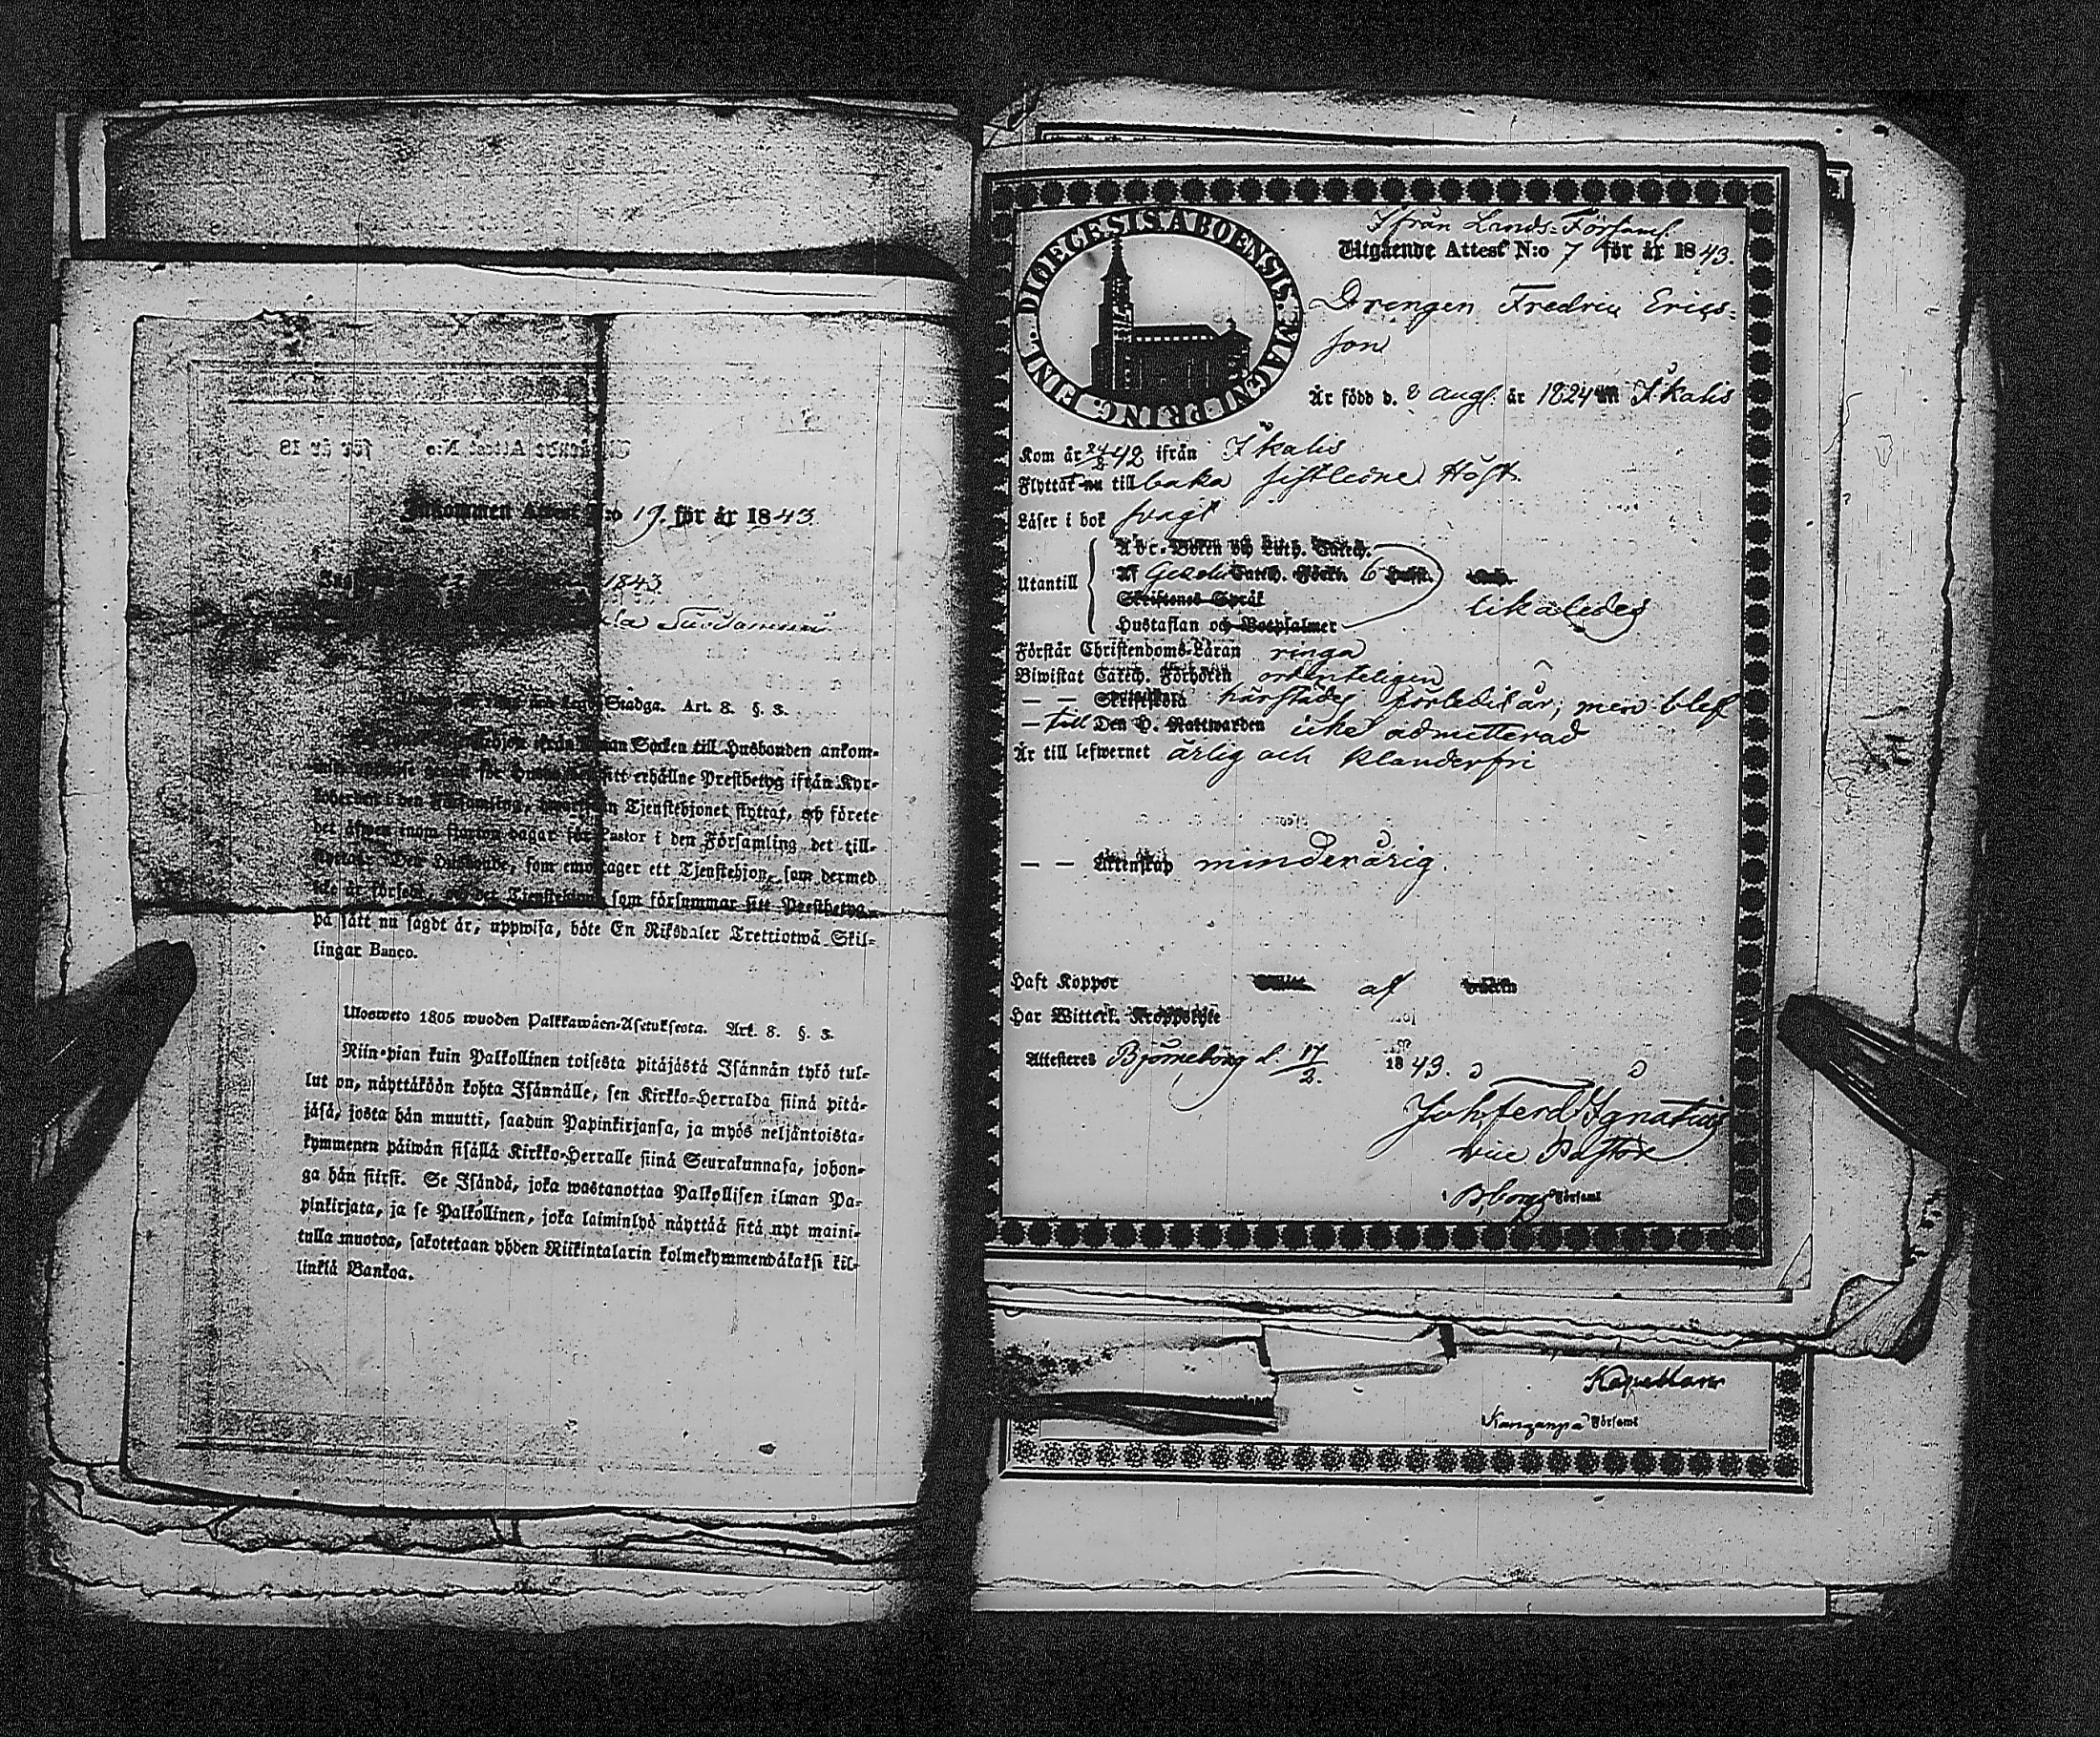 för år 18
N:o 19. för år 1843.
1843.
Stadga. Art. 8. §. 3.
Socken till Husbonden ankom-
sitt erhållne Prestbetyg ifrån Kyr-
Tjenstehjonet flyttat, och förete
det äfwen inom fjorton dagar för Pastor i den Församling det till-
flyttat. Den Husbonde, som emottager ett Tjenstehjon, som dermed
icke är försedt, och det Tjenstehjon, som försummar sitt Prestbetyg,
på sätt nu sagdt är, uppwisa, böte En Riksdaler Trettiotwå Skil-
lingar Banco.
Uloswето 1805 wuoden Palkkawäen-Asetuksesta. Art. 8. §. 3.
Niin-pian kuin Palkollinen toisesta pitäjästä Isännän tykö tul-
lut on, näyttäköön kohta Isännälle, sen Kirkko-Herralda siinä pitä-
jäsä, josta hän muutti, saadun Papinkirjansa, ja myös neljäntoista-
kymmenen päiwän sisällä Kirkko-Herralle siinä Seurakunnasa, johon-
ga hän siirsi. Se Isändä, joka wastanottaa Palkollisen ilman Pa-
pinkirjata, ja se Palkollinen, joka laiminlyö näyttää sitä nyt maini-
tulla muotoa, sakotetaan yhden Riikintalarin kolmekymmendäkaksi kil-
linkiä Bankoa.
FINL. DIOECESIS ABOENSIS. MAGNI PRINC.
Ifrån Lands-Församl
Utgående Attest N:o 7 för år 1843.
Drengen Fredric Erics-
son
Är född d. 8 Augs. år 1824 i Ikalis
Kom år 24/2 42 ifrån Ikalis
Flyttat nu tillbaka sistledne Höst
Läser i bok svagt
Utantill
A b c-Boken och Luth. Catech.
Af Gezelii Catech. Förkl. 6
likaledes
Skriftenes Språk
Hustaflan och Botpsalmer
Förstår Christendoms-Läran ringa
Biwistat Catech. Förhören ordenteligen
— — Skriftskola härstädes förledit år, men blef
— till Den H. Nattwarden icke admitterad
Är till lefwernet ärlig och klanderfri
— — Äktenskap minderårig.
Haft Koppor af
Har Witterl. Kroppslyte
Attesteras Björneborg d. 17/2. 1843.
Joh. Ferd. Ignatius
vice Pastor
i Bborgs Församl
Kapellan
Kangaspä Församl